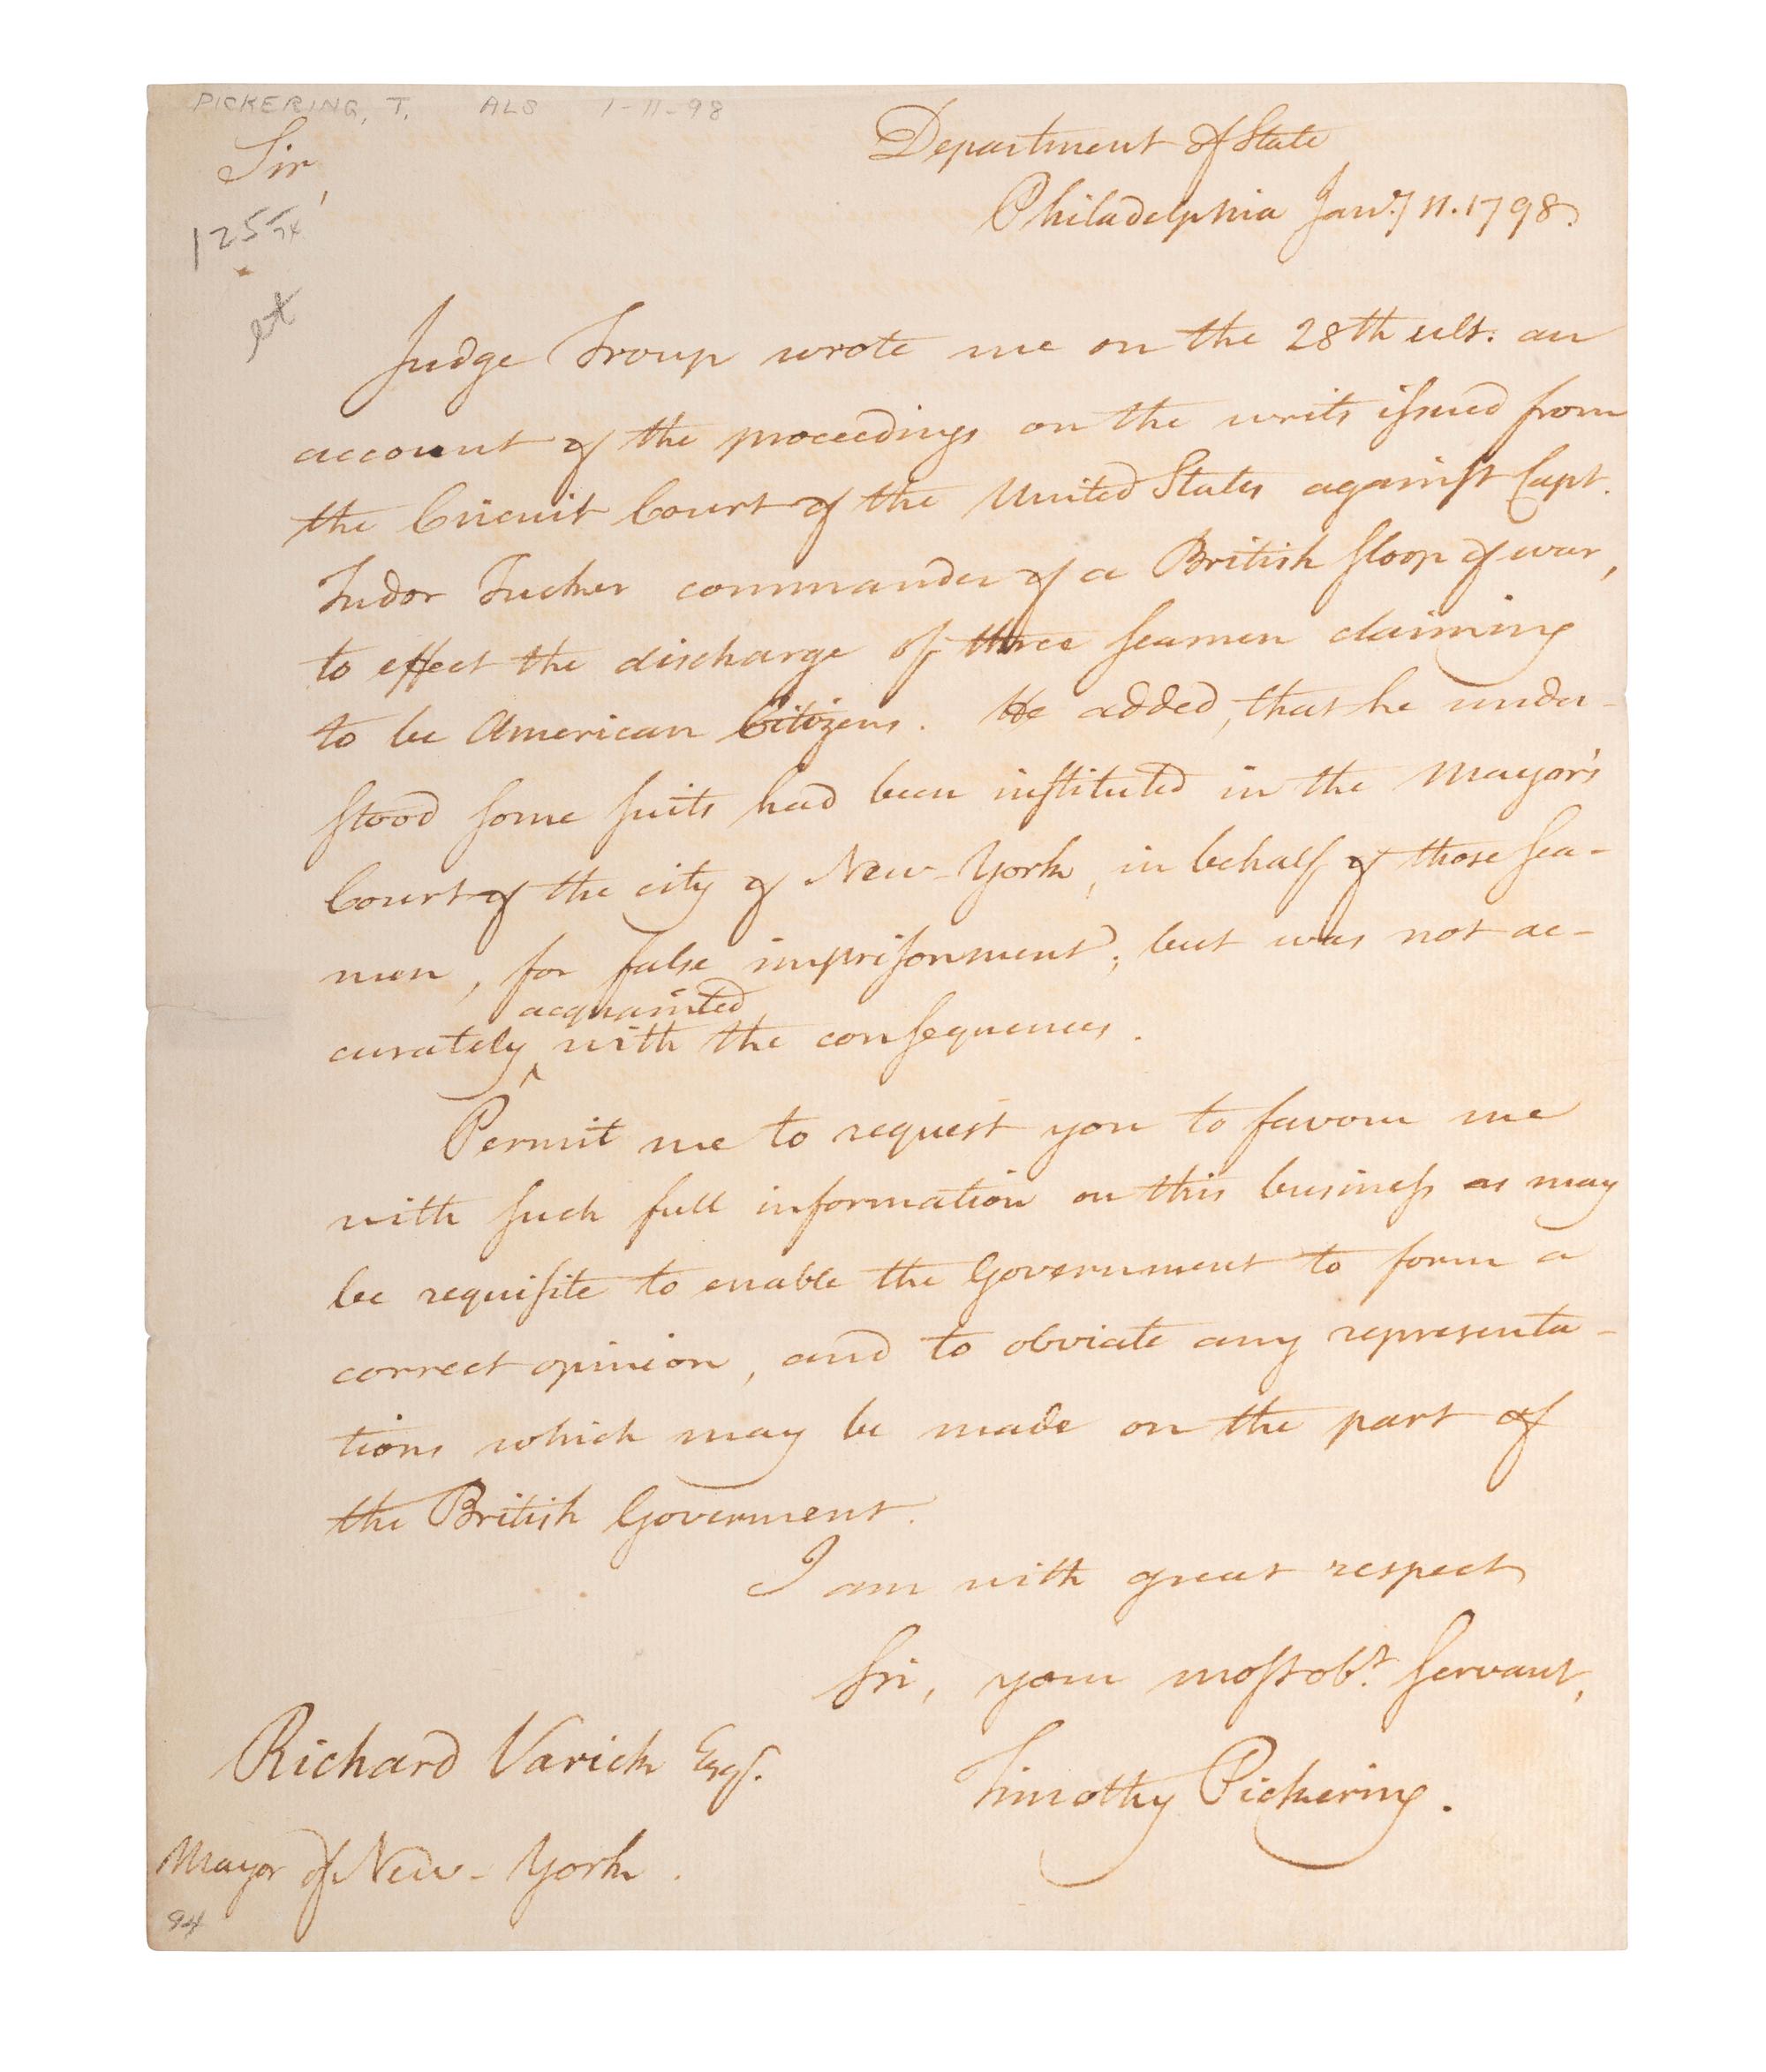 PICKERING, T. ALS 1-11-98
Department of State
Sir,
Philadelphia Jany. 11. 1798.
125
Judge Troup wrote me on the 28th ult. an
account of the proceedings on the writs issued from
the Circuit Court of the United States against Capt.
Tudor Tucker commander of a British sloop of war,
to effect the discharge of three seamen claiming
to be American Citizens. He added, that he under-
stood some suits had been instituted in the Mayor's
Court of the city of New-York, in behalf of those sea-
men, for false imprisonment; but was not ac-
acquainted
curately ‸ with the consequences.
Permit me to request you to favour me
with such full information on this business as may
be requisite to enable the Government to form a
correct opinion, and to obviate any representa-
tions which may be made on the part of
the British Goverment.
I am with great respect
Sir, your most obt. servant,
Richard Varick Esqr.
Timothy Pickering.
Mayor of New-York.
94